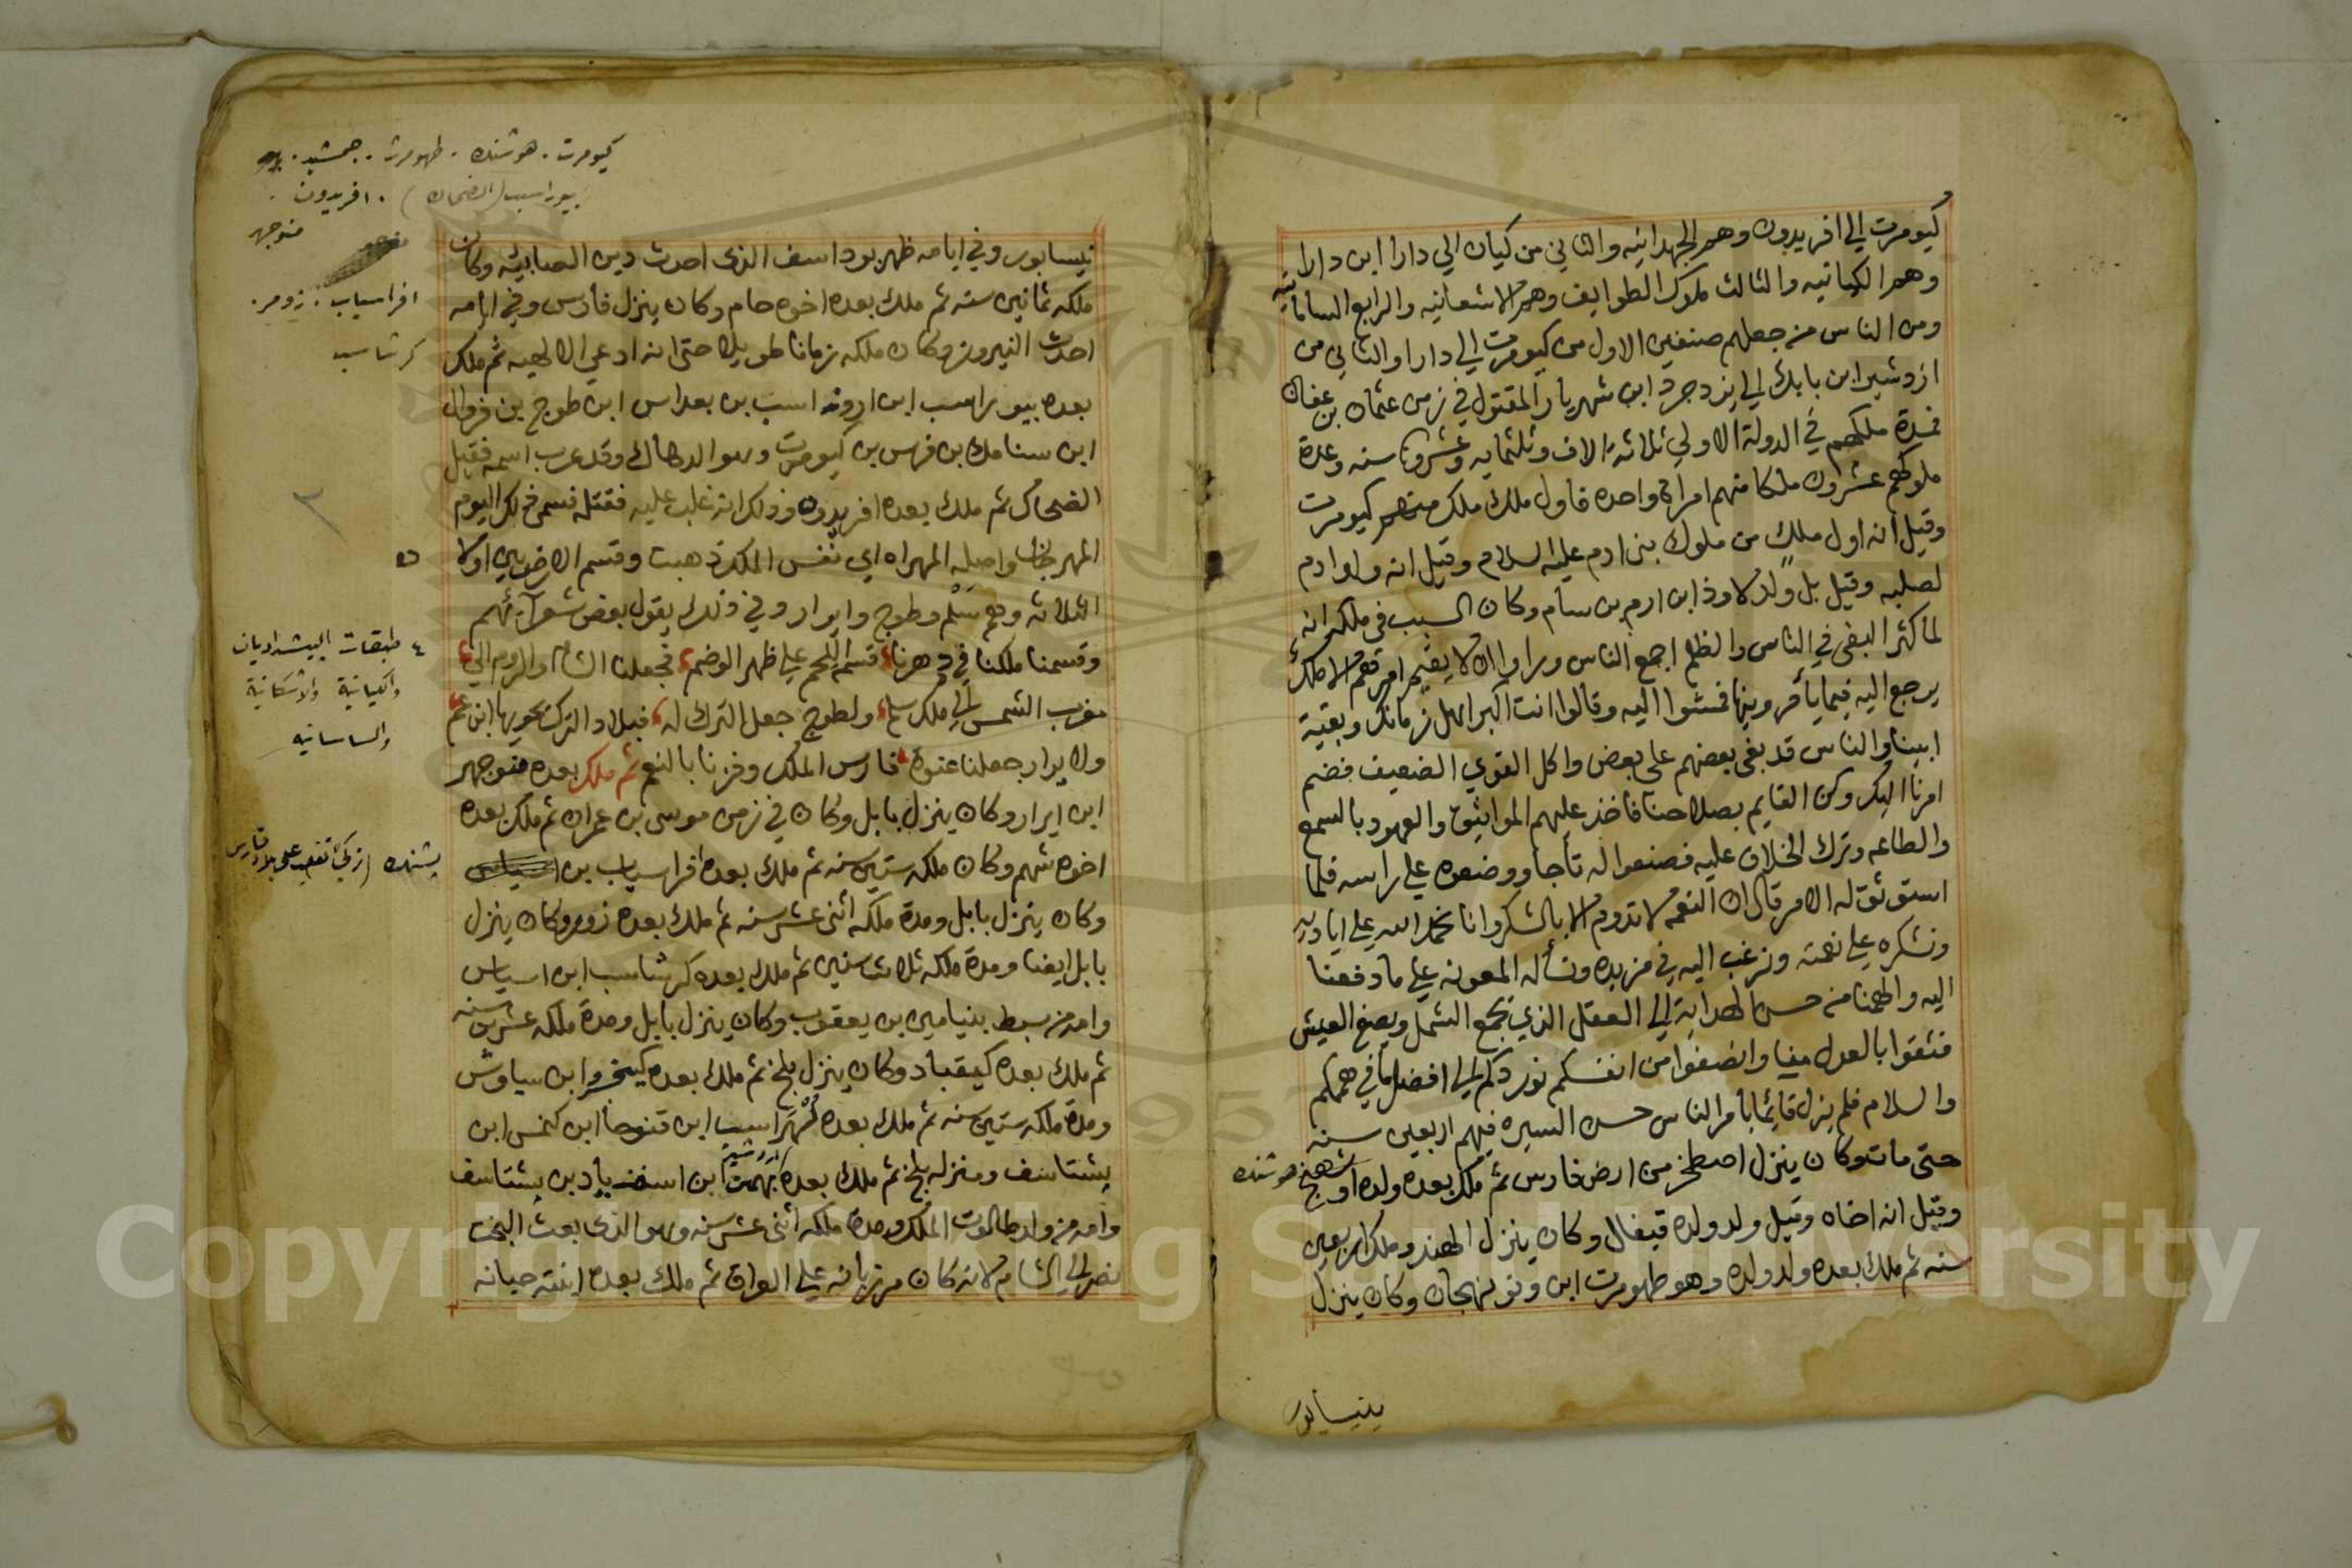 كيومرت الي افريدون وهم الجهدانيه والثاني من كيان الي دارا ابن دارا
وهم الكيانيه والثالث ملوك الطوايف وهم الاشعانيه والرابع الساسانيه
ومن الناس من جعلهم صنفين الاول من كيومرت الي دارا والثاني من
ازدشير ابن بابك الي يزدجرد ابن شهريار المقتول في زمن عثمان بن عفان
فمدة ملكهم في الدولة الاولي ثلاثة الاف وثلثمايه وعشرون سنه وعدة
ملوكهم عشرون ملكا منهم امراة واحده فاول ملك ملك منهم كيومرت
وقيل انه اول ملك من ملوك بني ادم عليه السلام وقيل انه ولد ادم
لصلبه وقيل بل ولد لاوذ ابن ارم بن سام وكان السبب في ملكه انه
لما كثر البغي في الناس والظلم اجمع الناس وراوا ان لا يقيم امرهم الا ملك
يرجع اليه فيما يأمر وينها فمشوا اليه وقالوا انت اكبر اهل زمانك وبقية
ابينا والناس قد بغي بعضهم علي بعض واكل القوي الضعيف فضم
امرنا اليك وكن القايم بصلاحنا فاخذ عليهم المواثيق والعهود بالسمع
والطاعه وترك الخلاف عليه فصنعوا له تأجا ووضعوه علي راسه فلما
استوثق له الامر قال ان النعم لا تدوم الا بالشكر وانا نحمد الله علي اياديه
ونشكره علي نعمته ونرغب اليه في مزيده ونسأله المعونه علي ما دفعنا
اليه والهمنا من حسن الهدايه الي العقل الذي يجمع الشمل ويصفي العيش
فثقوا بالعدل منا وانصفوا من انفسكم نوردكم الي افضل ما في هممكم
والسلام فلم يزل قائما بأمر الناس حسن السيره فيهم اربعين سنه
حتى مات وكان ينزل اصطخر من ارض فارس ثم ملك بعده ولده اوشهنج
هوشنك
وقيل انه اخاه وقيل ولد ولده قيغال وكان ينزل الهند وملك اربعين
سنه ثم ملك بعده ولد ولده وهو طهومرت ابن ونونهجان وكان ينزل
بنيسابور
كيومرت . هوشنك . طهومرت . جمشيد .
بيوراسب (الضحاك) . افريدون .
منوجهر
افراسياب . زومر .
كرشاسب
نيسابور وفي ايامه ظهر بوداسف الذي احدث دين الصابيه وكان
ملكه ثمانين سنه ثم ملك بعده اخوه حام وكان ينزل فارس وفي ايامه
احدث النيروز وكان ملكه زمانا طويلا حتى انه ادعي الالهيه ثم ملك
بعده بيوراسب ابن اروند اسب بن بعداس ابن طوج بن فروال
ابن سنامك بن فرس بن كيومرت وهو الدهاك وقد عرب اسمه فقيل
الضحاك ثم ملك بعده افريدون وذلك انه غلب عليه فقتله فسمي ذلك اليوم
المهرجان واصله المهراه اي نفس الملك ذهبت وقسم الارض بين اولاده
الثلاثه وهم سلم وطوج وايرار وفي ذلك يقول بعض شعرآئهم
وقسمنا ملكنا في دهرنا قسم اللحم علي ظهر الوضم فجعلنا الشام والروم الي
مغرب الشمس الي ملك سلم ولطوج جعل الترك له فبلاد الترك يحويها ابن عم
ولايرار جعلنا عنوة فارس الملك وفزنا بالنعم ثم ملك بعده منوجهر
ابن ايرار وكان ينزل بابل وكان في زمن موسى بن عمران ثم ملك بعده
اخوه شهم وكان ملكه ستين سنه ثم ملك بعده افراسياب بن
وكان ينزل بابل ومدة ملكه اثني عشر سنه ثم ملك بعده زوم وكان ينزل
بابل ايضا ومدة ملكه ثلاث سنين ثم ملك بعده كرشاسب ابن اسياس
وامه من سبط بنيامين بن يعقوب وكان ينزل بابل ومدة ملكه عشرين سنه
ثم ملك بعده كيقباد وكان ينزل بلخ ثم ملك بعده كيخسرو ابن سياوش
ومدة ملكه ستين سنه ثم ملك بعده لهراسب ابن قنوحا ابن كنمس ابن
يشتاسف ومنزله بلخ ثم ملك بعده بهمن ازدشير ابن اسفنديار بن يشتاسف
وامه من ولد طالوت الملك ومدة ملكه اثني عشر سنه وهو الذي بعث البخت
نصر الي الشام لانه كان مرزبانه علي العراق ثم ملك بعده ابنته حمانه
٤ طبقات البيشداديان
والكيانية والاشكانية
والساسانيه